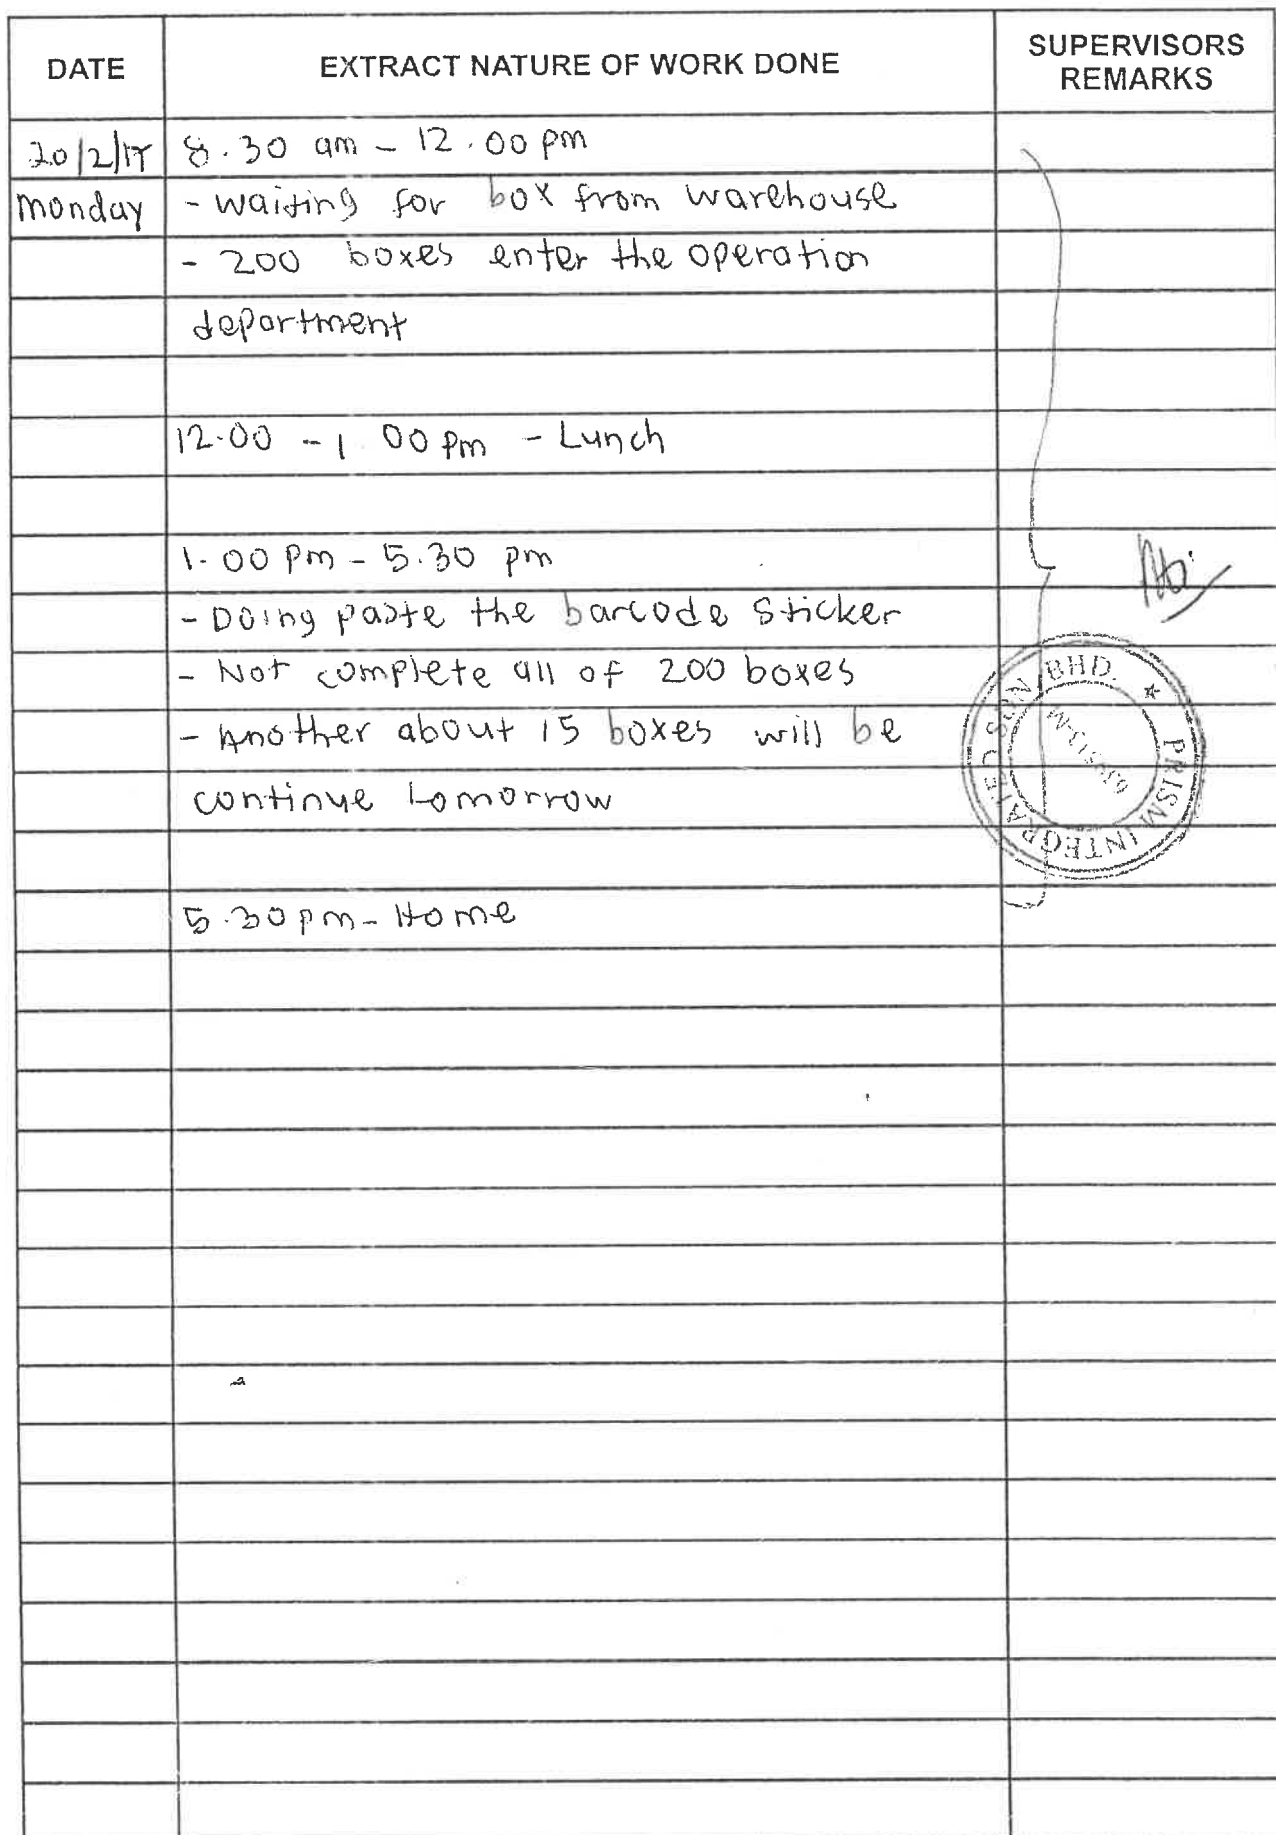 DATE
EXTRACT NATURE OF WORK DONE
SUPERVISORS
REMARKS
20/2/17 8.30 am - 12.00 pm
monday - waiting for box from warehouse
- 200 boxes enter the operation
department
12.00 - 1.00 pm - Lunch
1.00 pm - 5.30 pm
- Doing paste the barcode sticker
- Not complete all of 200 boxes
- Another about 15 boxes will be
continue tomorrow
5.30 pm - Home
PRISM INTEGRATED SDN BHD. *